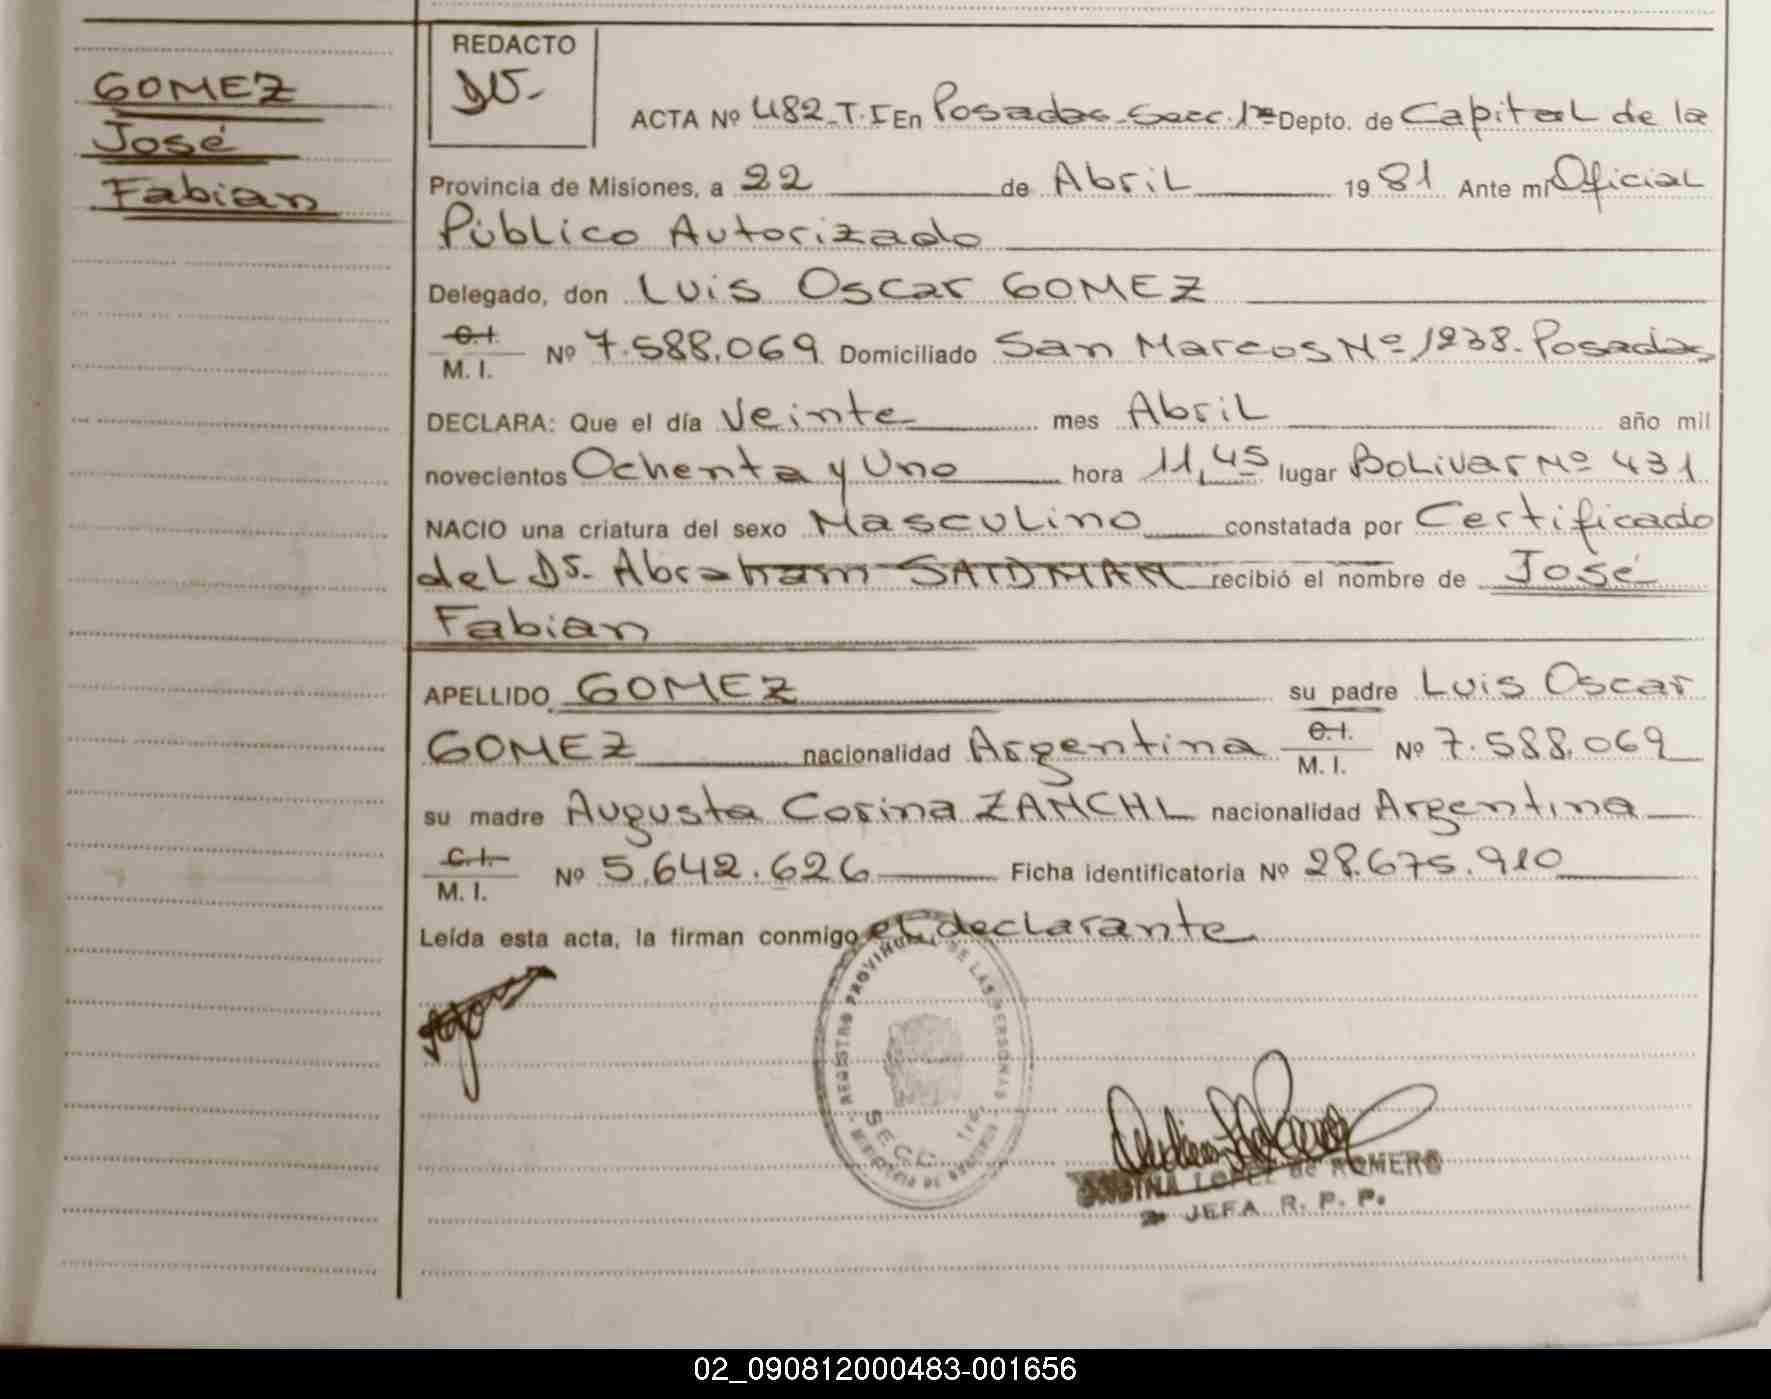 GOMEZ
José
Fabian
REDACTO
ACTA Nº 482-T.I En Posadas-Secc.1ra Depto. de Capital de la
Provincia de Misiones, a 22 de Abril 1981 Ante mí Oficial
Público Autorizado
Delegado, don Luis Oscar GOMEZ
C.I.
M. I. Nº 7.588.069 Domiciliado San Marcos Nº 1238. Posadas
DECLARA: Que el día Veinte mes Abril año mil
novecientos Ochenta y Uno hora 11,45 lugar Bolivar Nº 431
NACIO una criatura del sexo Masculino constatada por Certificado
del Dr. Abraham SAIDMAN recibió el nombre de José
Fabian
APELLIDO GOMEZ su padre Luis Oscar
GOMEZ nacionalidad Argentina C.I.
M. I. Nº 7.588.069
su madre Augusta Corina ZANCHI nacionalidad Argentina
C.I.
M. I. Nº 5.642.626 Ficha identificatoria Nº 28.675.910
Leída esta acta, la firman conmigo el declarante
REGISTRO PROVINCIAL DE LAS PERSONAS
SECC. 1ra.
MINISTERIO DE GOBIERNO
LOPEZ de ROMERO
JEFA R. P. P.
02_090812000483-001656